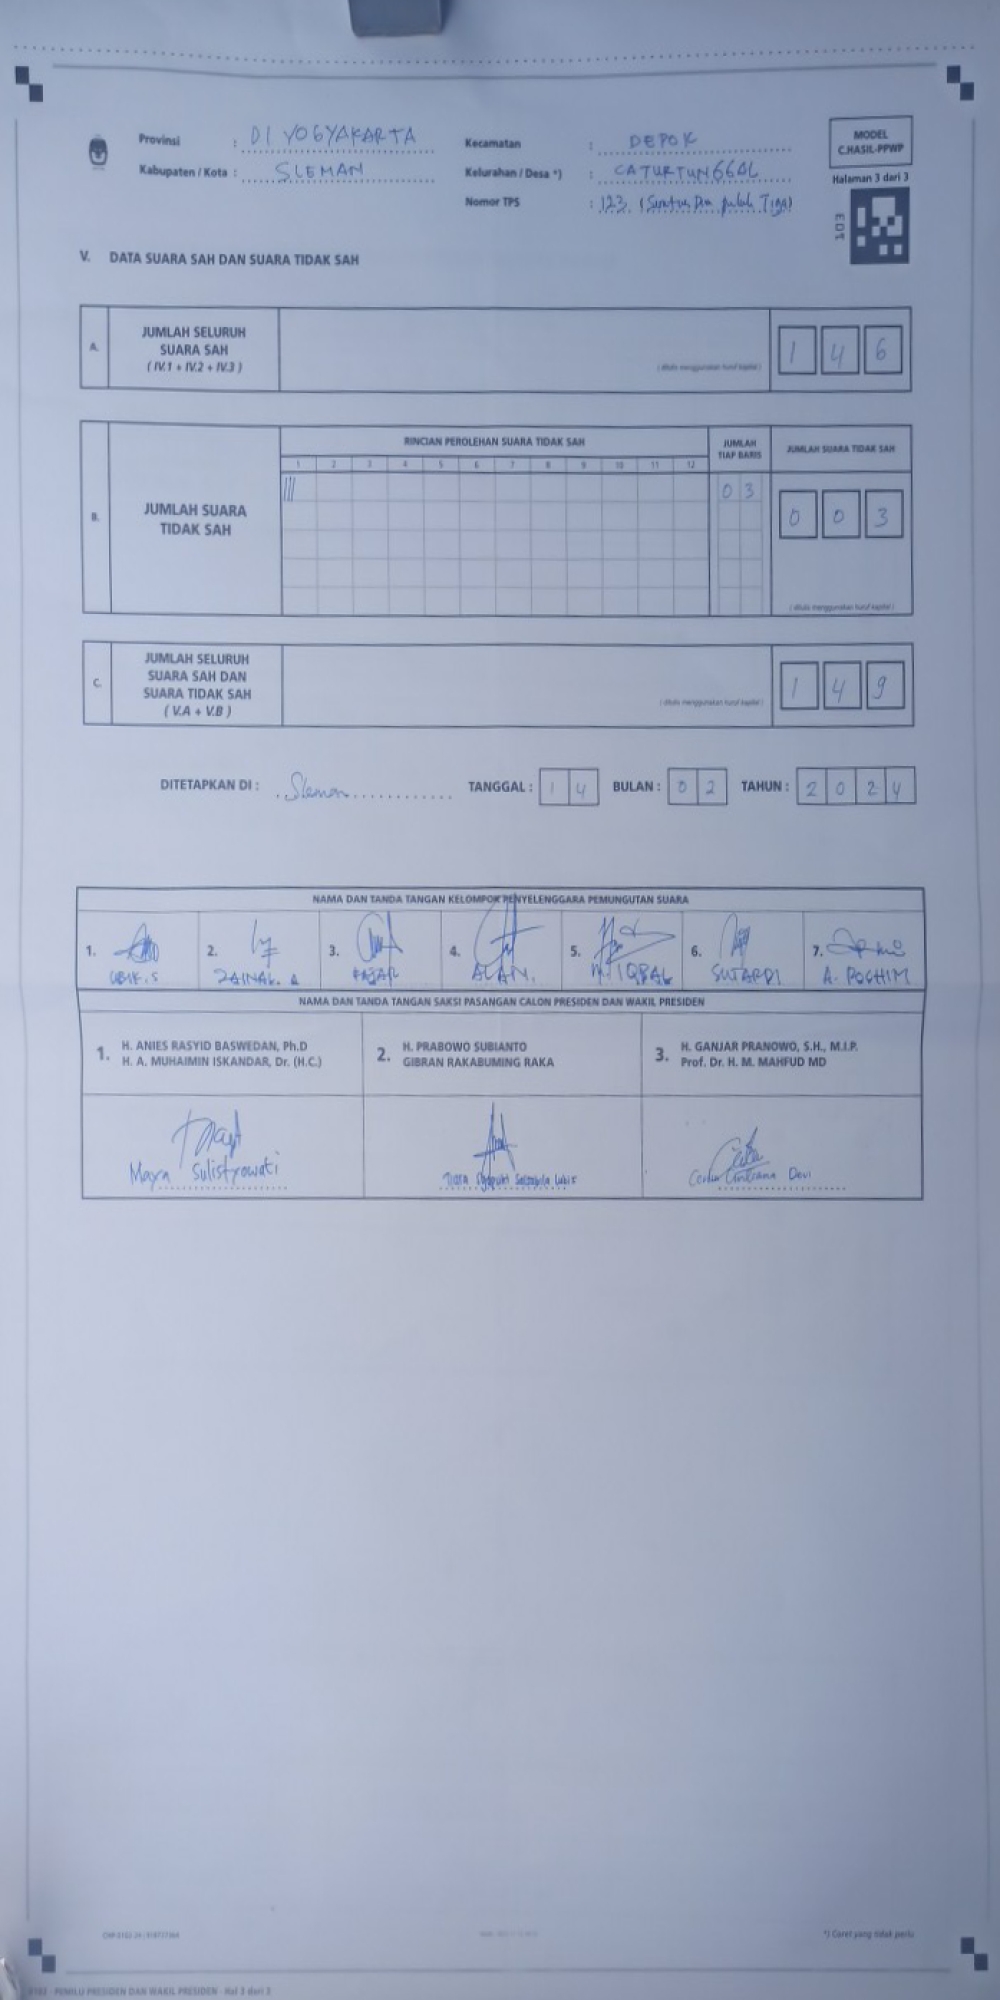 Provinsi : DI YOGYAKARTA
Kabupaten / Kota : SLEMAN
Kecamatan : DEPOK
Kelurahan / Desa *) : CATURTUNGGAL
Nomor TPS : 123 (Seratus Dua puluh Tiga)
MODEL
C.HASIL-PPWP
Halaman 3 dari 3
103
V. DATA SUARA SAH DAN SUARA TIDAK SAH
A. JUMLAH SELURUH
SUARA SAH
( IV.1 + IV.2 + IV.3 )
( ditulis menggunakan huruf kapital )
1 4 6
B. JUMLAH SUARA
TIDAK SAH
RINCIAN PEROLEHAN SUARA TIDAK SAH
JUMLAH
TIAP BARIS
JUMLAH SUARA TIDAK SAH
1 2 3 4 5 6 7 8 9 10 11 12
||| 0 3
0 0 3
( ditulis menggunakan huruf kapital )
C. JUMLAH SELURUH
SUARA SAH DAN
SUARA TIDAK SAH
( V.A + V.B )
( ditulis menggunakan huruf kapital )
1 4 9
DITETAPKAN DI : Sleman TANGGAL : 1 4 BULAN : 0 2 TAHUN : 2 0 2 4
NAMA DAN TANDA TANGAN KELOMPOK PENYELENGGARA PEMUNGUTAN SUARA
1. 2. 3. 4. 5. 6. 7.
ZAINAL. A FAJAR ALAN. M. IQBAL SUTARDI A. ROCHIM
NAMA DAN TANDA TANGAN SAKSI PASANGAN CALON PRESIDEN DAN WAKIL PRESIDEN
1. H. ANIES RASYID BASWEDAN, Ph.D
H. A. MUHAIMIN ISKANDAR, Dr. (H.C.)
2. H. PRABOWO SUBIANTO
GIBRAN RAKABUMING RAKA
3. H. GANJAR PRANOWO, S.H., M.I.P.
Prof. Dr. H. M. MAHFUD MD
Maya Sulistyowati
Salsabila Lubis
Devi
*) Coret yang tidak perlu
PEMILU PRESIDEN DAN WAKIL PRESIDEN - Hal 3 dari 3